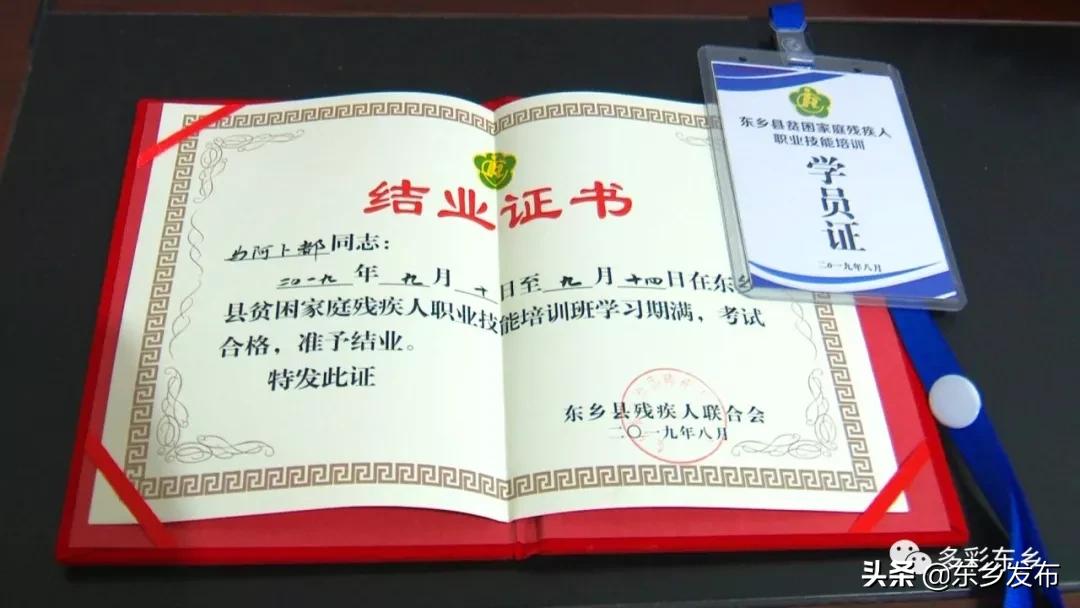 结业证书
马阿卜都同志：
二〇一九年九月十日至九月十四日在东乡
县贫困家庭残疾人职业技能培训班学习期满，考试
合格，准予结业。
特发此证
东乡县残疾人联合会
二〇一九年八月
东乡县贫困家庭残疾人
职业技能培训
学员证
二〇一九年八月
多彩东乡
头条@东乡发布